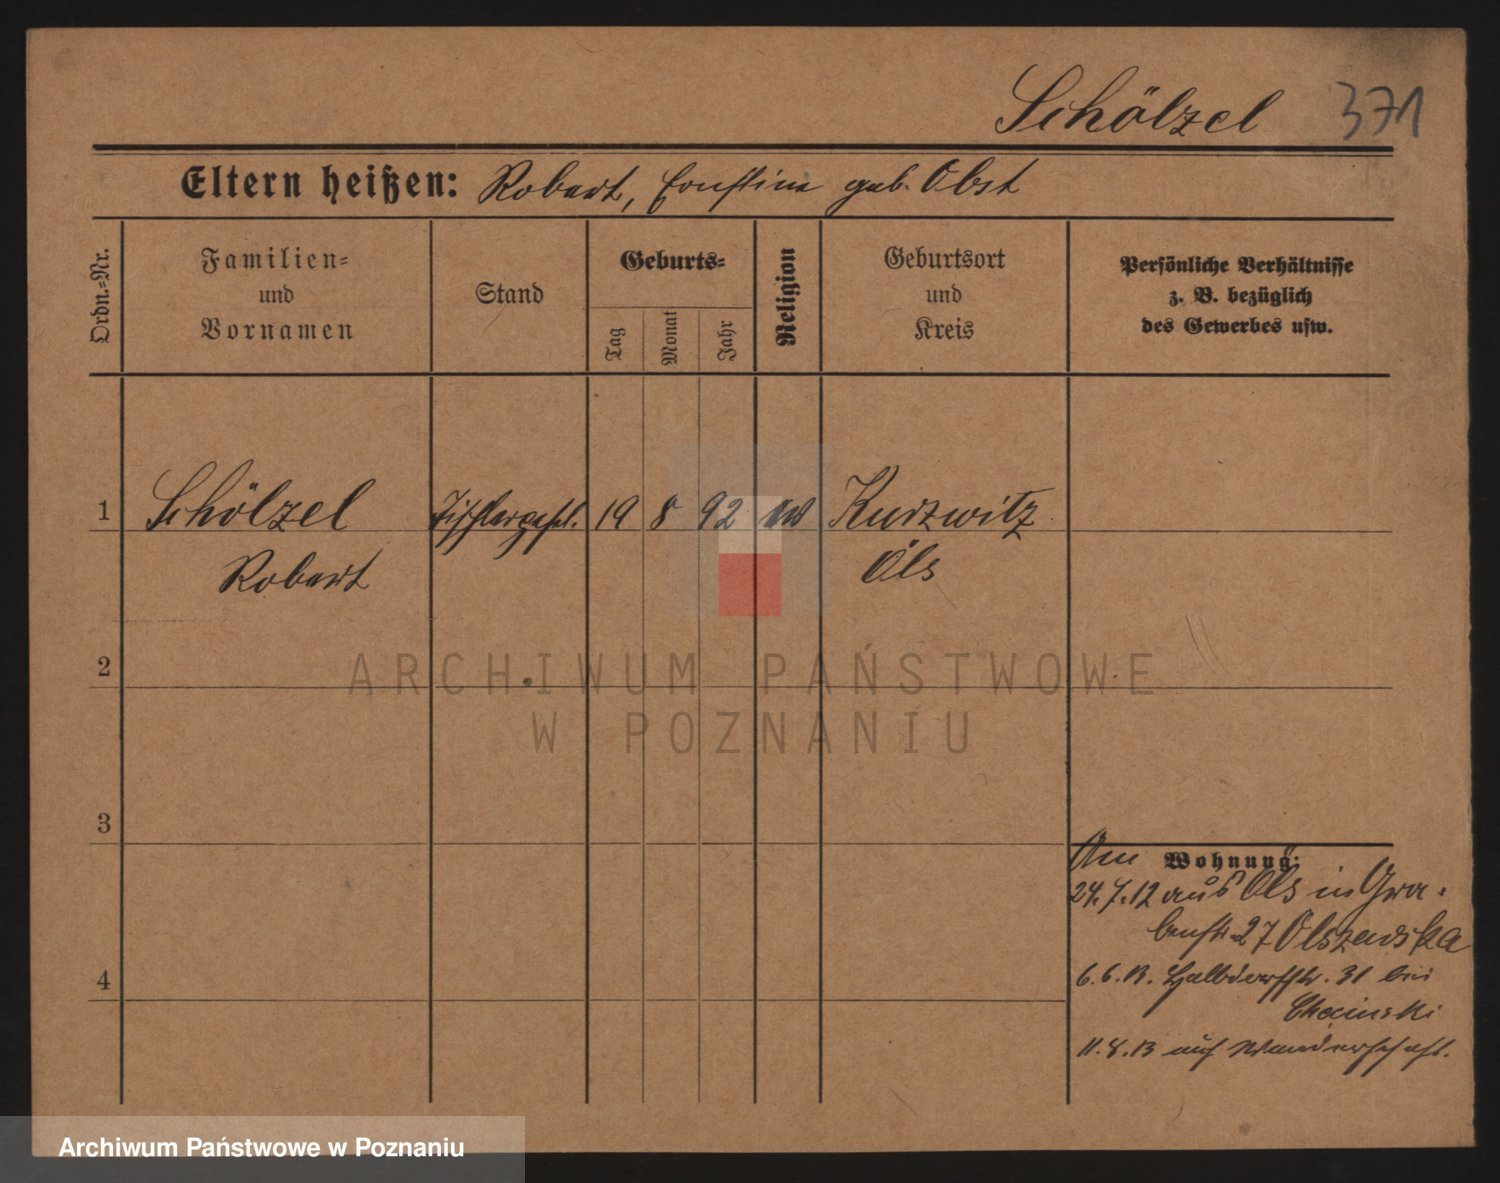 Schölzel 371
Eltern heißen: Robert, Ernstine geb. Obst
Ordn.-Nr.
Familien-
und
Vornamen
Stand
Geburts-
Tag
Monat
Jahr
Religion
Geburtsort
und
Kreis
Persönliche Verhältnisse
z. B. bezüglich
des Gewerbes usw.
1 Schölzel Tischlergesel. 19 8 92 Kurzwitz
Robert Öls
2
3
4
Wohnung:
Am
24.7.12 aus Öls in Gra-
benstr. 27 Olszewska
6.6.13. Halbdorfstr. 31 bei
Checinski
11.8.13 auf Wanderschaft.
ARCHIWUM PAŃSTWOWE
W POZNANIU
Archiwum Państwowe w Poznaniu